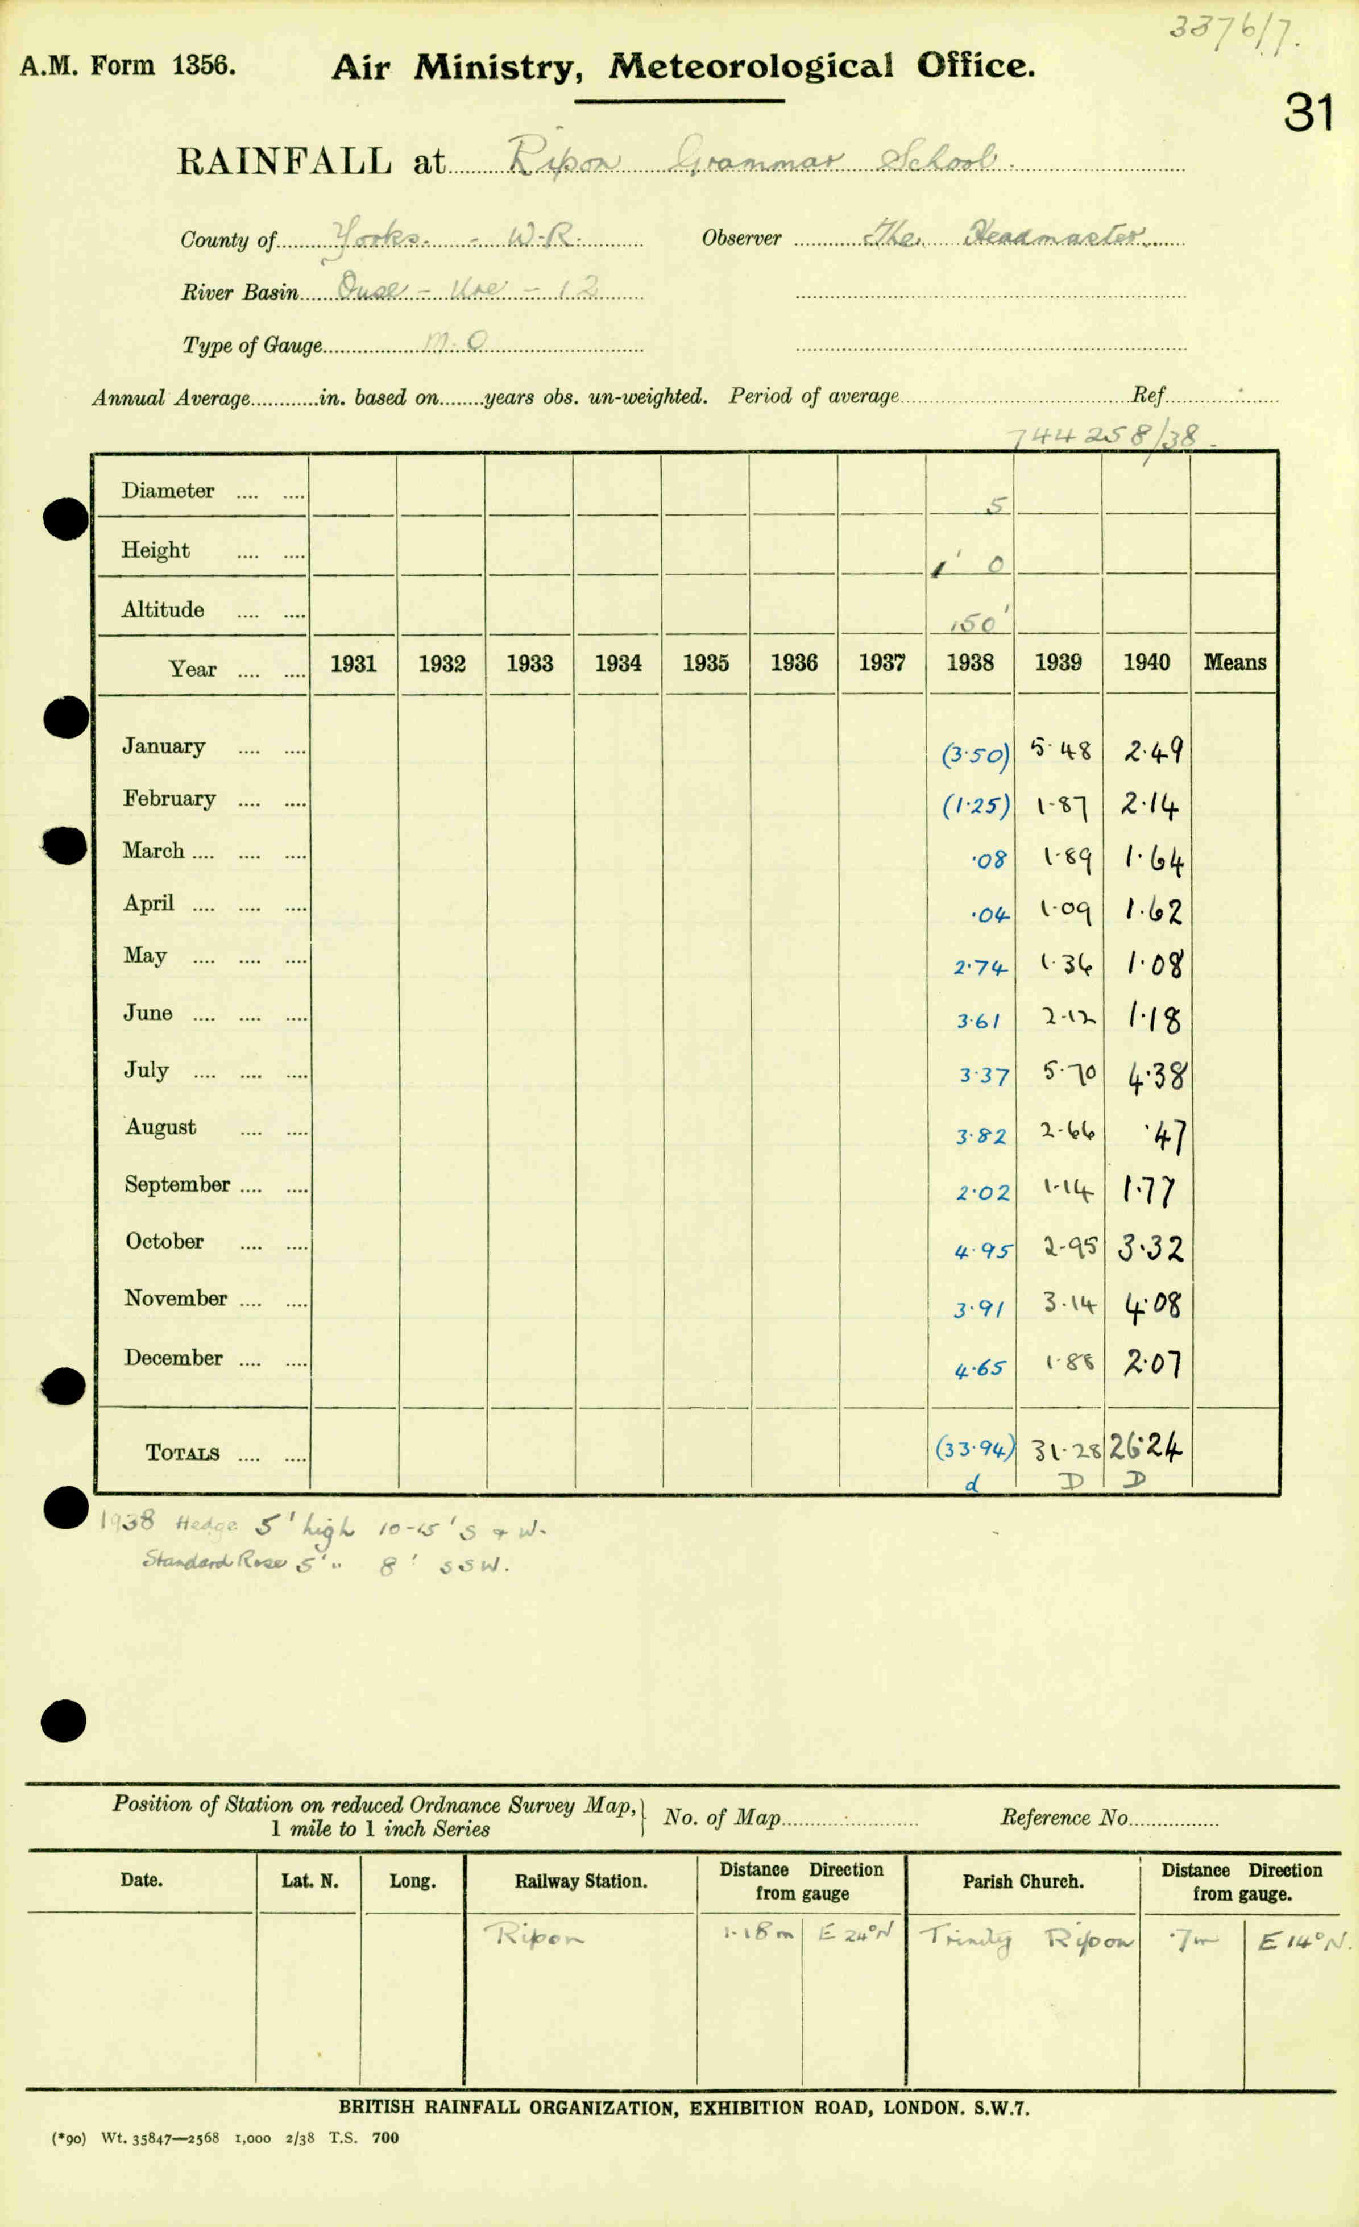 3376/7.
A.M. Form 1356. Air Ministry, Meteorological Office.
31
RAINFALL at Ripon Grammar School.
County of Yorks. - W.R. Observer The Headmaster
River Basin Ouse - Ure - 12
Type of Gauge M.O
Annual Average in. based on years obs. un-weighted. Period of average Ref.
744258/38.
Diameter 5
Height 1' 0
Altitude 150'
Year 1931 1932 1933 1934 1935 1936 1937 1938 1939 1940 Means
January (3.50) 5.48 2.49
February (1.25) 1.87 2.14
March .08 1.89 1.64
April .04 1.09 1.62
May 2.74 1.36 1.08
June 3.61 2.12 1.18
July 3.37 5.70 4.38
August 3.82 2.66 .47
September 2.02 1.14 1.77
October 4.95 2.95 3.32
November 3.91 3.14 4.08
December 4.65 1.88 2.07
TOTALS (33.94) 31.28 26.24
d D D
1938 Hedge 5' high 10-15' S & W.
Standard Rose 5' " 8' SSW.
Position of Station on reduced Ordnance Survey Map, } No. of Map Reference No.
1 mile to 1 inch Series
Date. Lat. N. Long. Railway Station. Distance Direction from gauge Parish Church. Distance Direction from gauge.
Ripon 1.18m E 24° N Trinity Ripon .7m E 14° N.
BRITISH RAINFALL ORGANIZATION, EXHIBITION ROAD, LONDON. S.W.7.
(*90) Wt. 35847—2568 1,000 2/38 T.S. 700